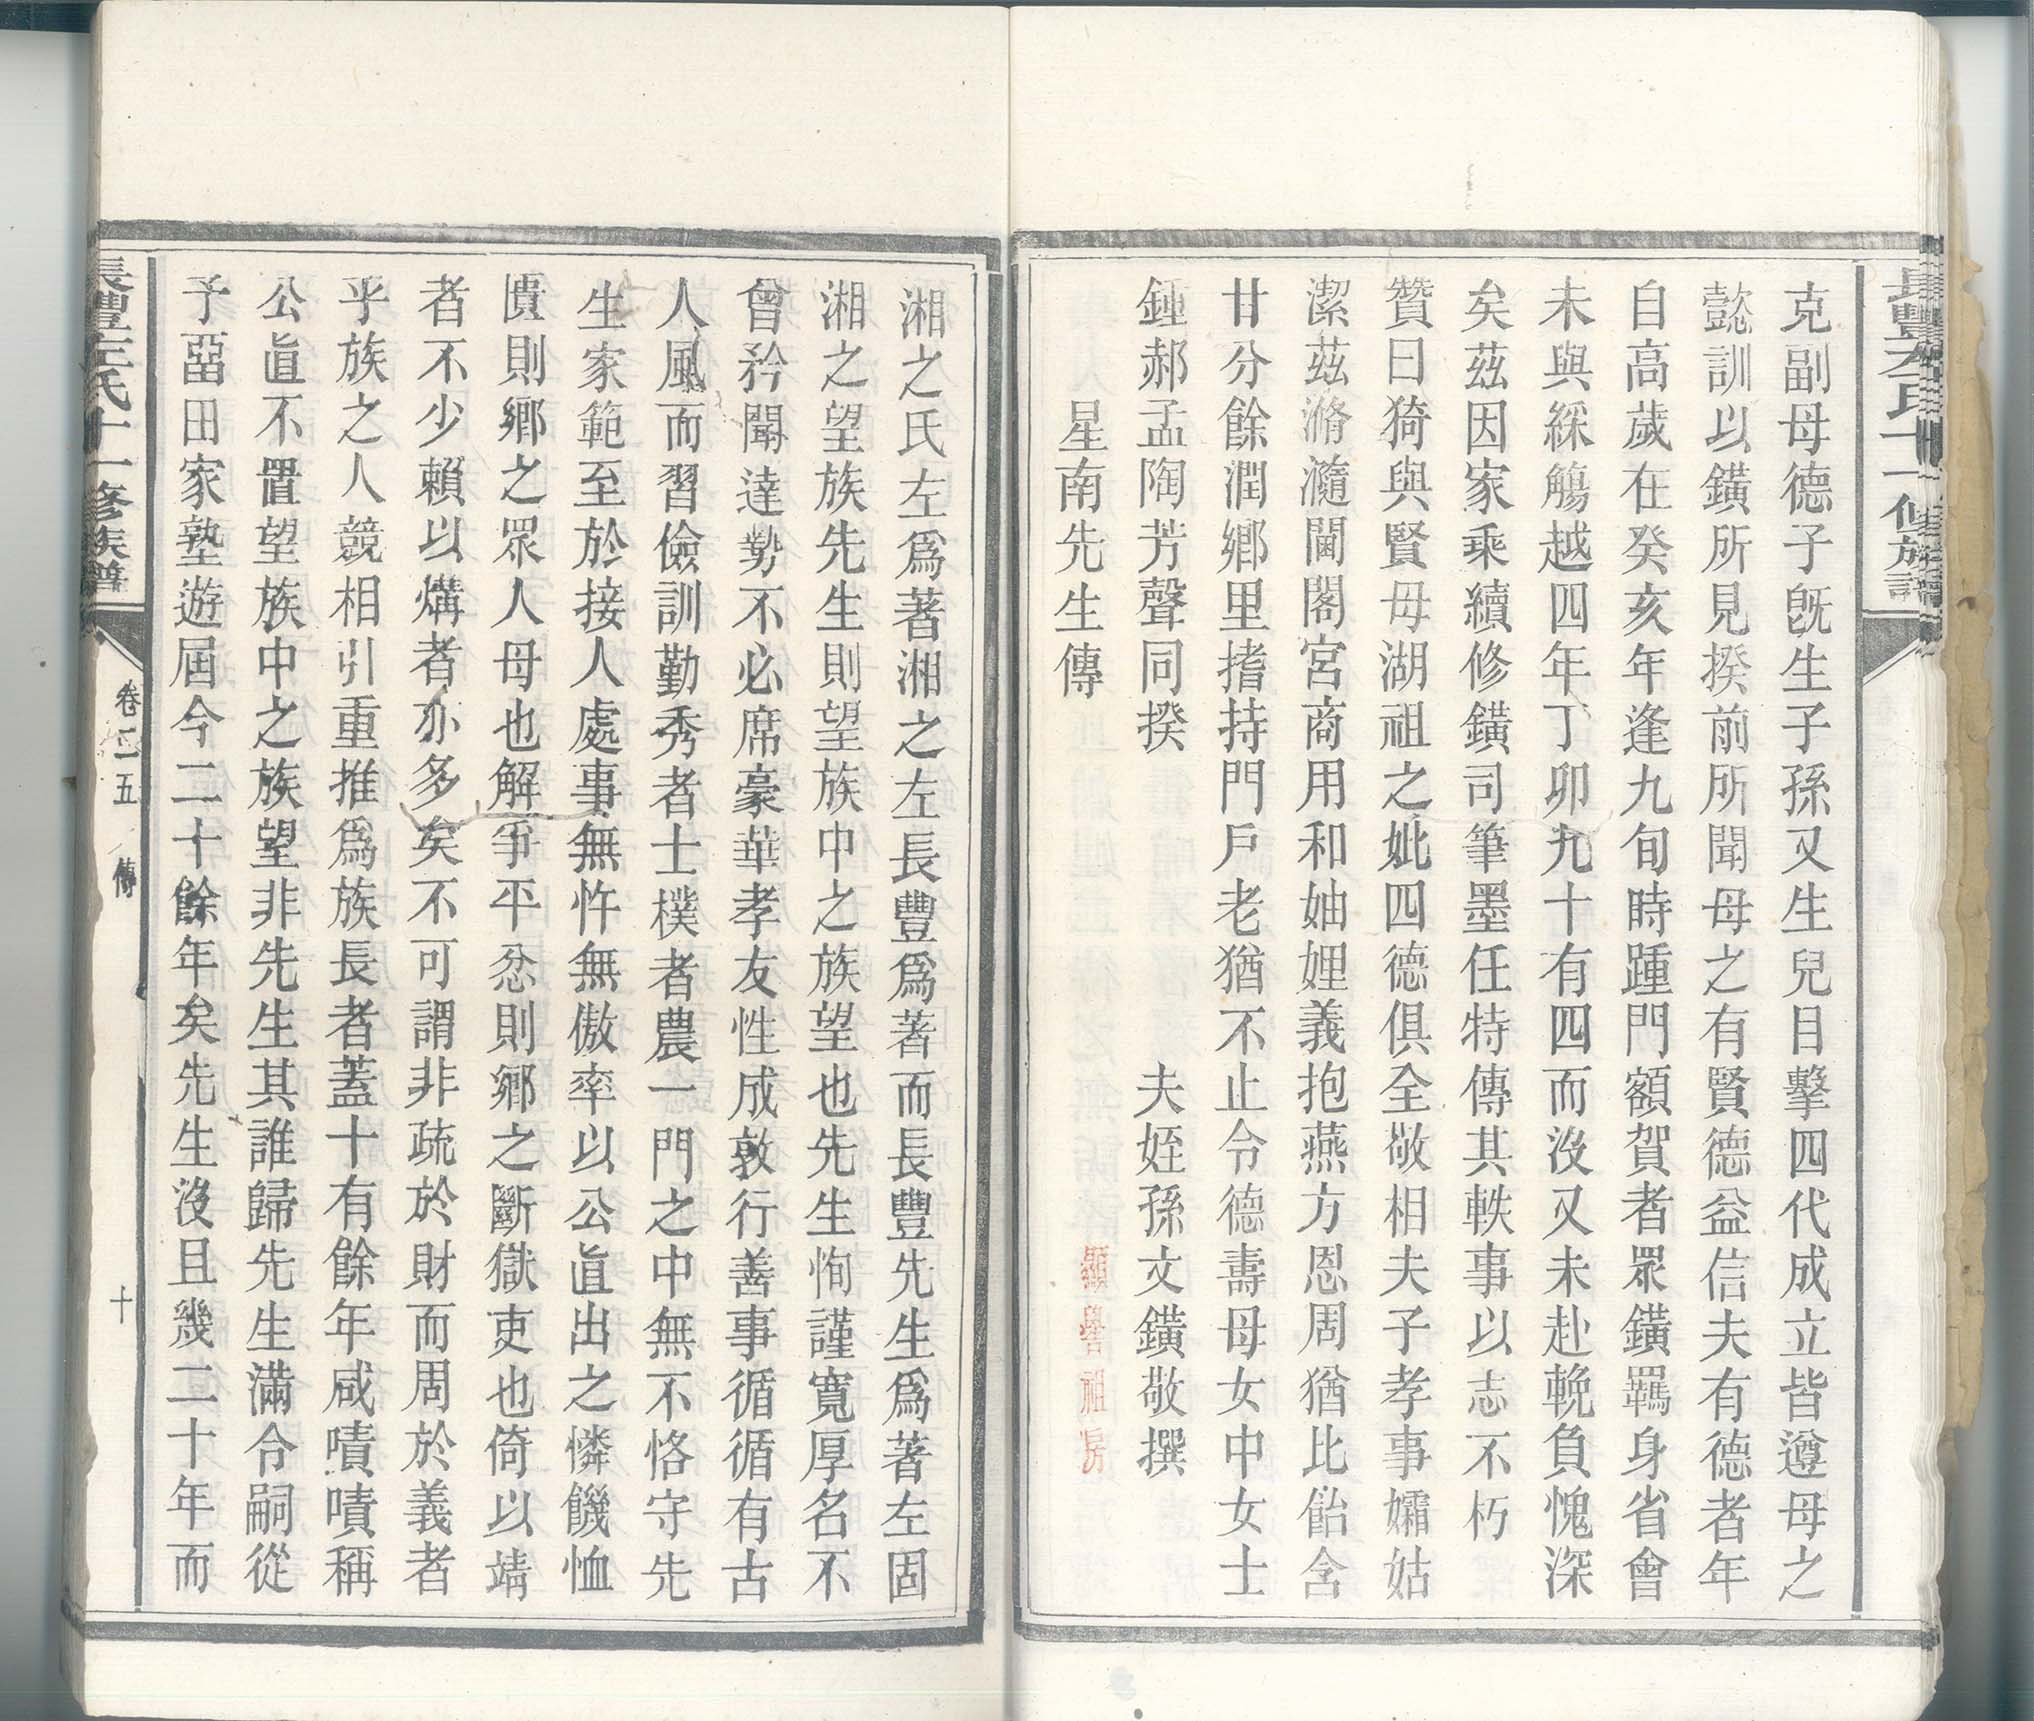 長豐左氏十一修族譜
克副母德子旣生子孫又生兒目擊四代成立皆遵母之
懿訓以鐄所見揆前所聞母之有賢德益信夫有德者年
自高歲在癸亥年逢九旬時踵門額賀者眾鐄羈身省會
未與綵觴越四年丁卯九十有四而沒又未赴輓負愧深
矣茲因家乘續修鐄司筆墨任特傳其軼事以志不朽
贊曰猗與賢母湖祖之妣四德俱全敬相夫子孝事孀姑
潔茲滫瀡閫閣宮商用和妯娌義抱燕方恩周猶比飴含
甘分餘潤鄉里揩持門戶老猶不止令德壽母女中女士
鍾郝孟陶芳聲同揆　夫姪孫文鐄敬撰
星南先生傳
顯譽祖房
湘之氏左爲著湘之左長豐爲著而長豐先生爲著左固
湘之望族先生則望族中之族望也先生恂謹寬厚名不
曾矜聞達勢不必席豪華孝友性成敦行善事循循有古
人風而習儉訓勤秀者士樸者農一門之中無不恪守先
生家範至於接人處事無忤無傲率以公直出之憐饑恤
匱則鄉之眾人母也解爭平忿則鄉之斷獄吏也倚以靖
者不少賴以燐者亦多矣不可謂非疏於財而周於義者
乎族之人競相引重推爲族長者蓋十有餘年咸嘖嘖稱
公直不置望族中之族望非先生其誰歸先生滿令嗣從
予畱田家塾遊屆今二十餘年矣先生沒且幾二十年而
長豐左氏十一修族譜
卷二五　傳
十